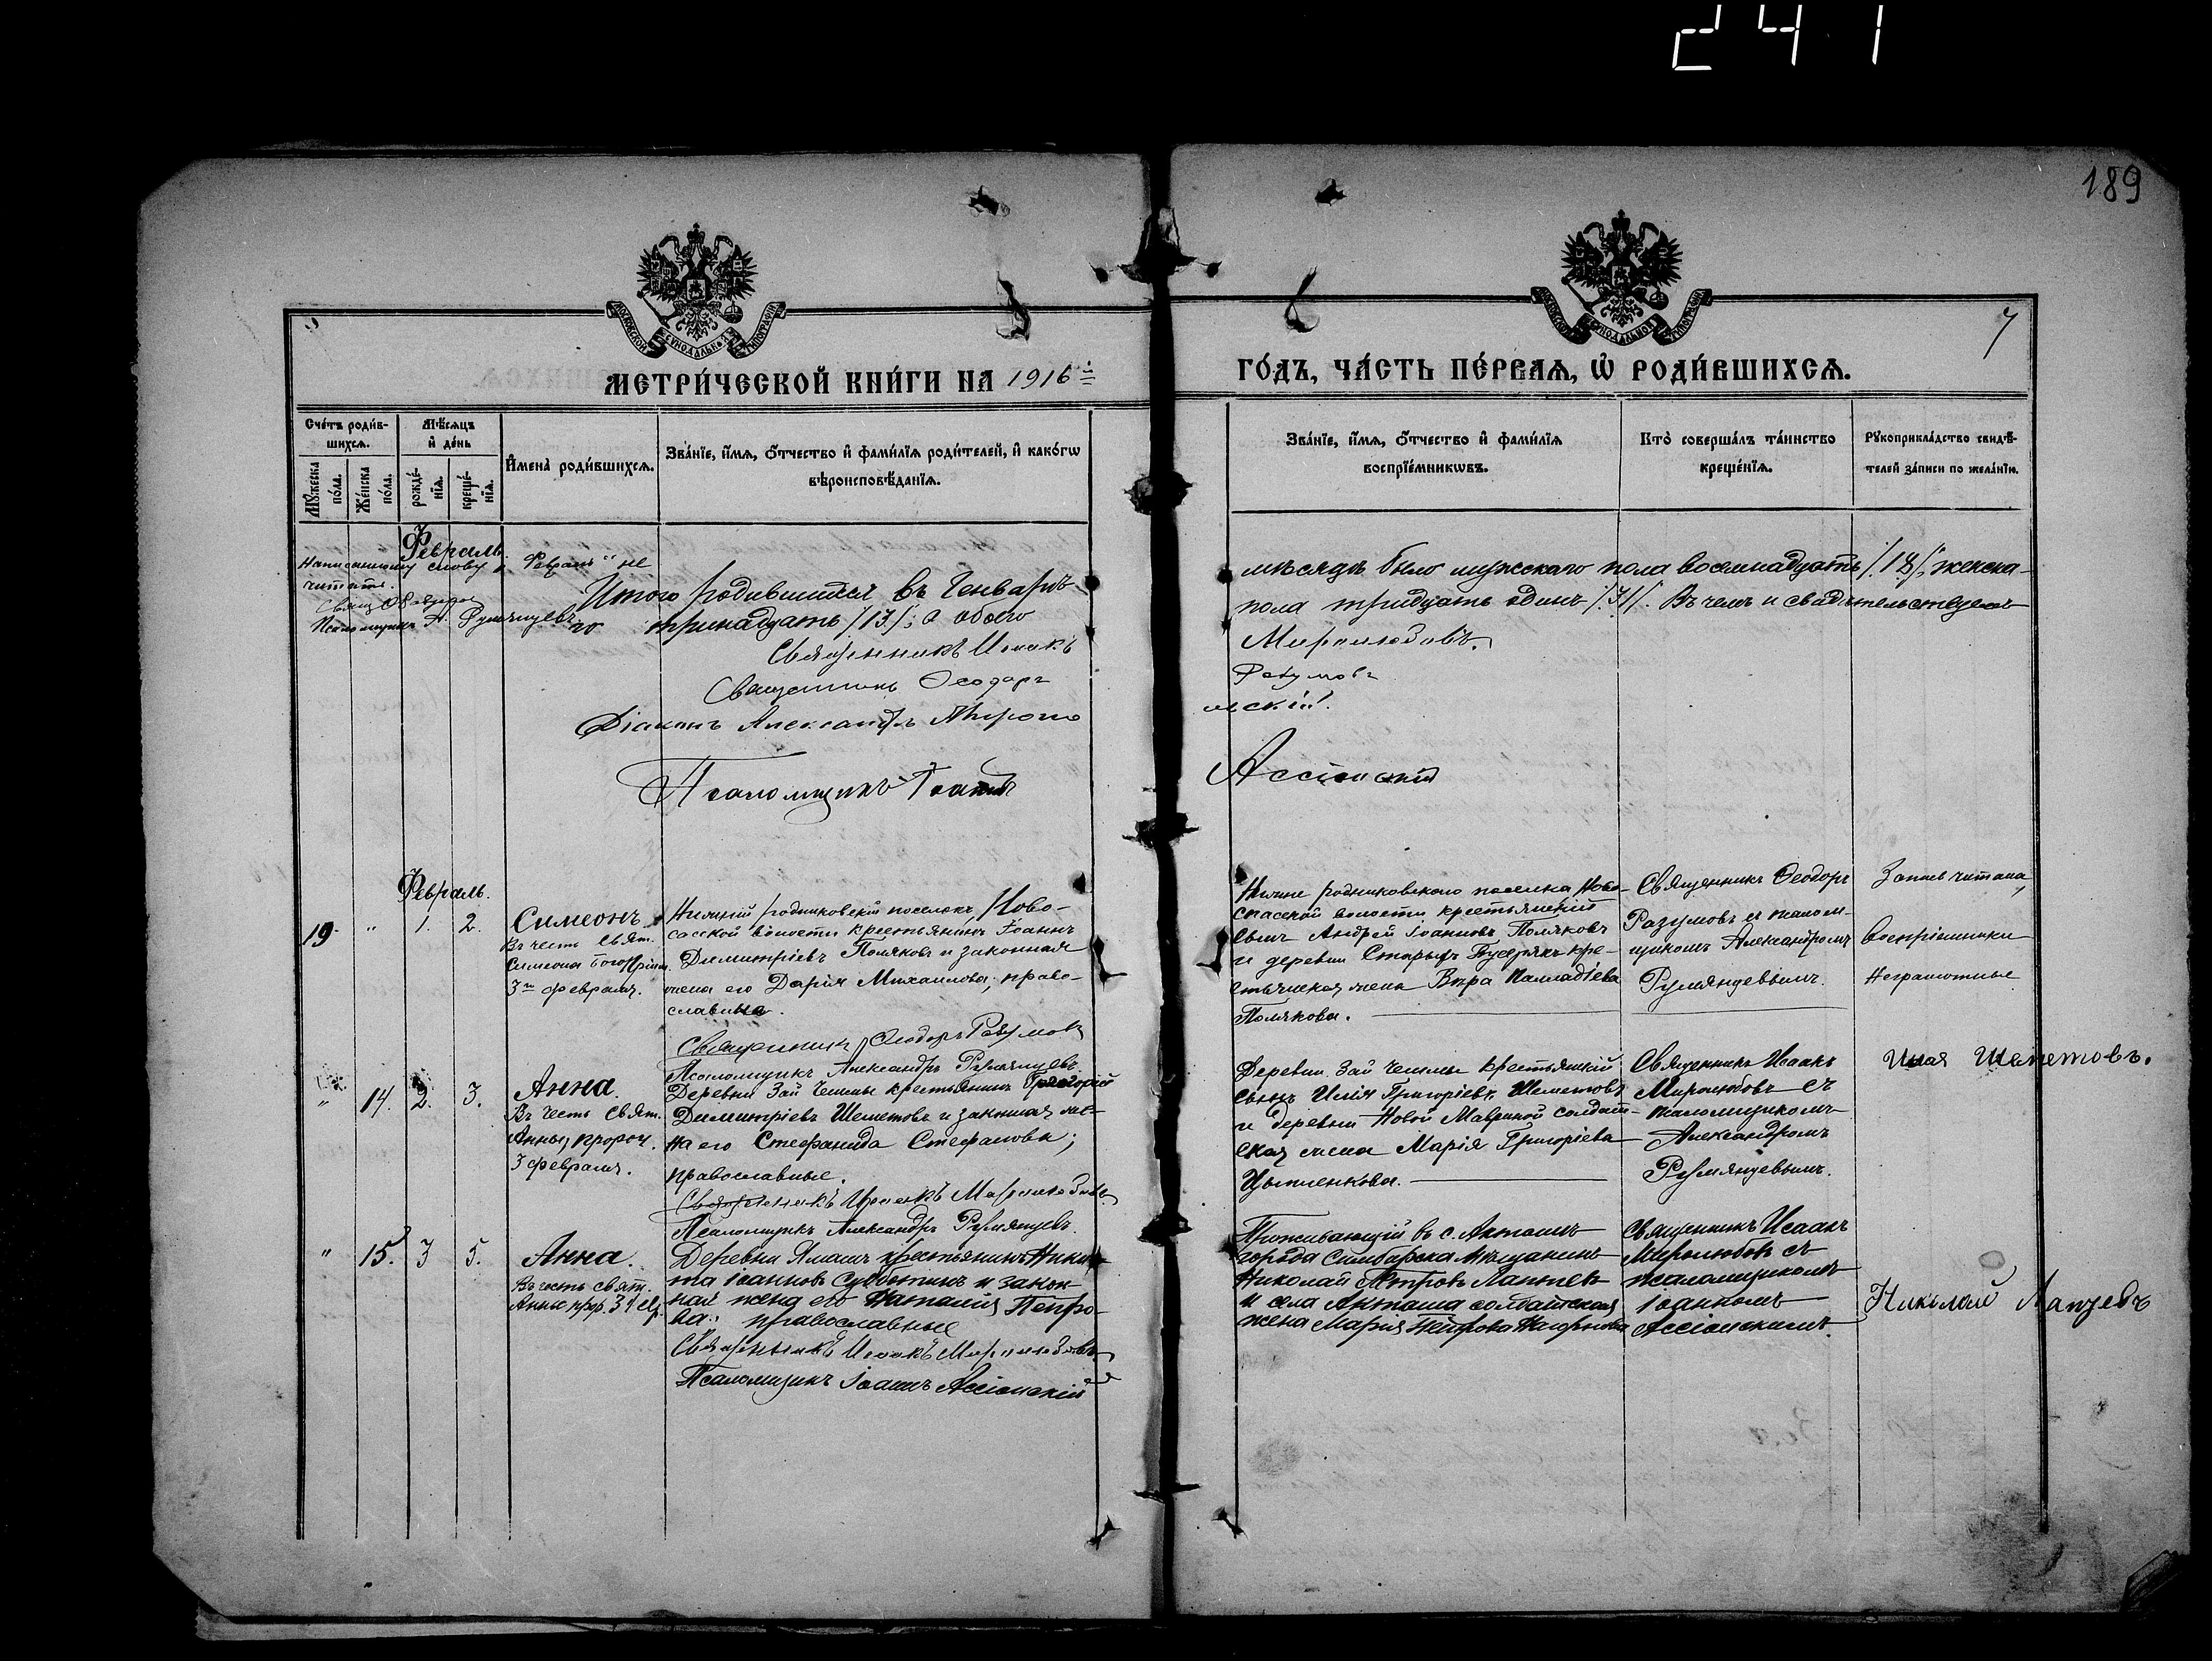 241
189
7
МОСКОВСКОЙ СУНОДАЛЬНОЙ ТИПОГРАФІИ
МОСКОВСКОЙ СУНОДАЛЬНОЙ ТИПОГРАФІИ
МЕТРИ́ЧЕСКОЙ КНИ́ГИ НА 1916 й
ГО́ДЪ, ЧА́СТЬ ПЕ́РВАѦ, Ѡ҆ РОДИ́ВШИХСѦ.
Сче́тъ роди́в-
шихсѧ.
Мѣ́сѧцъ
и҆ де́нь
Мꙋ́жеска
по́ла.
Же́нска
по́ла.
рожде́-
нїѧ.
креще́-
нїѧ.
И҆мена̀ роди́вшихсѧ.
Зва́нїе, и҆́мѧ, ѻ҆́тчество и҆ фами́лїѧ роди́телей, и҆ како́гѡ
вѣроисповѣ́данїѧ.
Зва́нїе, и҆́мѧ, ѻ҆́тчество и҆ фами́лїѧ
воспрїе́мникѡвъ.
Кто̀ соверша́лъ та́инство
креще́нїѧ.
Рꙋкоприкла́дство свидѣ́-
телей за́писи по жела́нїю.
Февраль.
Написанному слову „Февраль“ не
читать.
Псаломщикъ А. Румянцевъ
Итого родившихся въ Генварѣ
мѣсяцѣ было мужскаго пола восемнадцать /18/, женска-
го тринадцать /13/; а обоего
пола тридцать одинъ /31/. Въ чемъ и свидѣтельствуемъ
Священникъ Исаакъ
Миролюбовъ.
Священникъ Ѳеодоръ
Разумовъ
Діаконъ Александръ
мскій.
Псаломщикъ Іоаннъ
Ассіонскій
Февраль.
19. " 1. 2. Симеонъ
Въ честь Свят.
Симеона Богопріим.
3го февраля.
Нижній родниковскій поселокъ, Ново-
сасской волости крестьянинъ Іоаннъ
Димитріевъ Поляковъ и законная
жена его Дарія Михаилова; право-
славные.
Священникъ Ѳеодоръ Разумовъ
Псаломщикъ Александръ Румянцевъ.
Нижне родниковскаго поселка Ново-
спасской волости крестьянскій
сынъ Андрей Іоанновъ Поляковъ
и деревни Старыхъ кре-
стьянская жена Вѣра Палладіева
Полякова.
Священникъ Ѳеодоръ
Разумовъ съ псалом-
щикомъ Александромъ
Румянцевымъ.
Запись читана,
Воспріемники
Неграмотные
" 14. 2. 3. Анна.
Въ честь Свят.
Анны, пророч.
3 февраля.
Деревни Зай Чешмы крестьянинъ Григорій
Димитріевъ Шеметовъ и законная же-
на его Стефанида Стефанова;
православные.
Священникъ Исаакъ Миролюбовъ
Псаломщикъ Александръ Румянцевъ.
Деревни Зай Чешмы крестьянскій
сынъ Илія Григоріевъ Шеметовъ
и деревни Новой Мавриной солдат-
ская жена Марія Григоріева
Цыпленкова.
Священникъ Исаакъ
Миролюбовъ съ
псаломщикомъ
Александромъ
Румянцевымъ.
Илья Шеметовъ.
" 15. 3 5. Анна.
Въ честь свят.
Анны прор. 3 февр.
Деревни Ямашъ крестьянинъ Ники-
та Іоанновъ Субботинъ и закон-
ная жена его Наталія Петро-
ва; православные
Священникъ Исаакъ Миролюбовъ
Псаломщикъ Іоаннъ Ассіонскій
Проживающій въ с. Акташѣ
города Симбирска мѣщанинъ
Николай Петровъ Лапшевъ
и села Акташа солдатская
жена Марія
Священникъ Исаакъ
Миролюбовъ съ
псаломщикомъ
Іоанномъ
Ассіонскимъ.
Николай